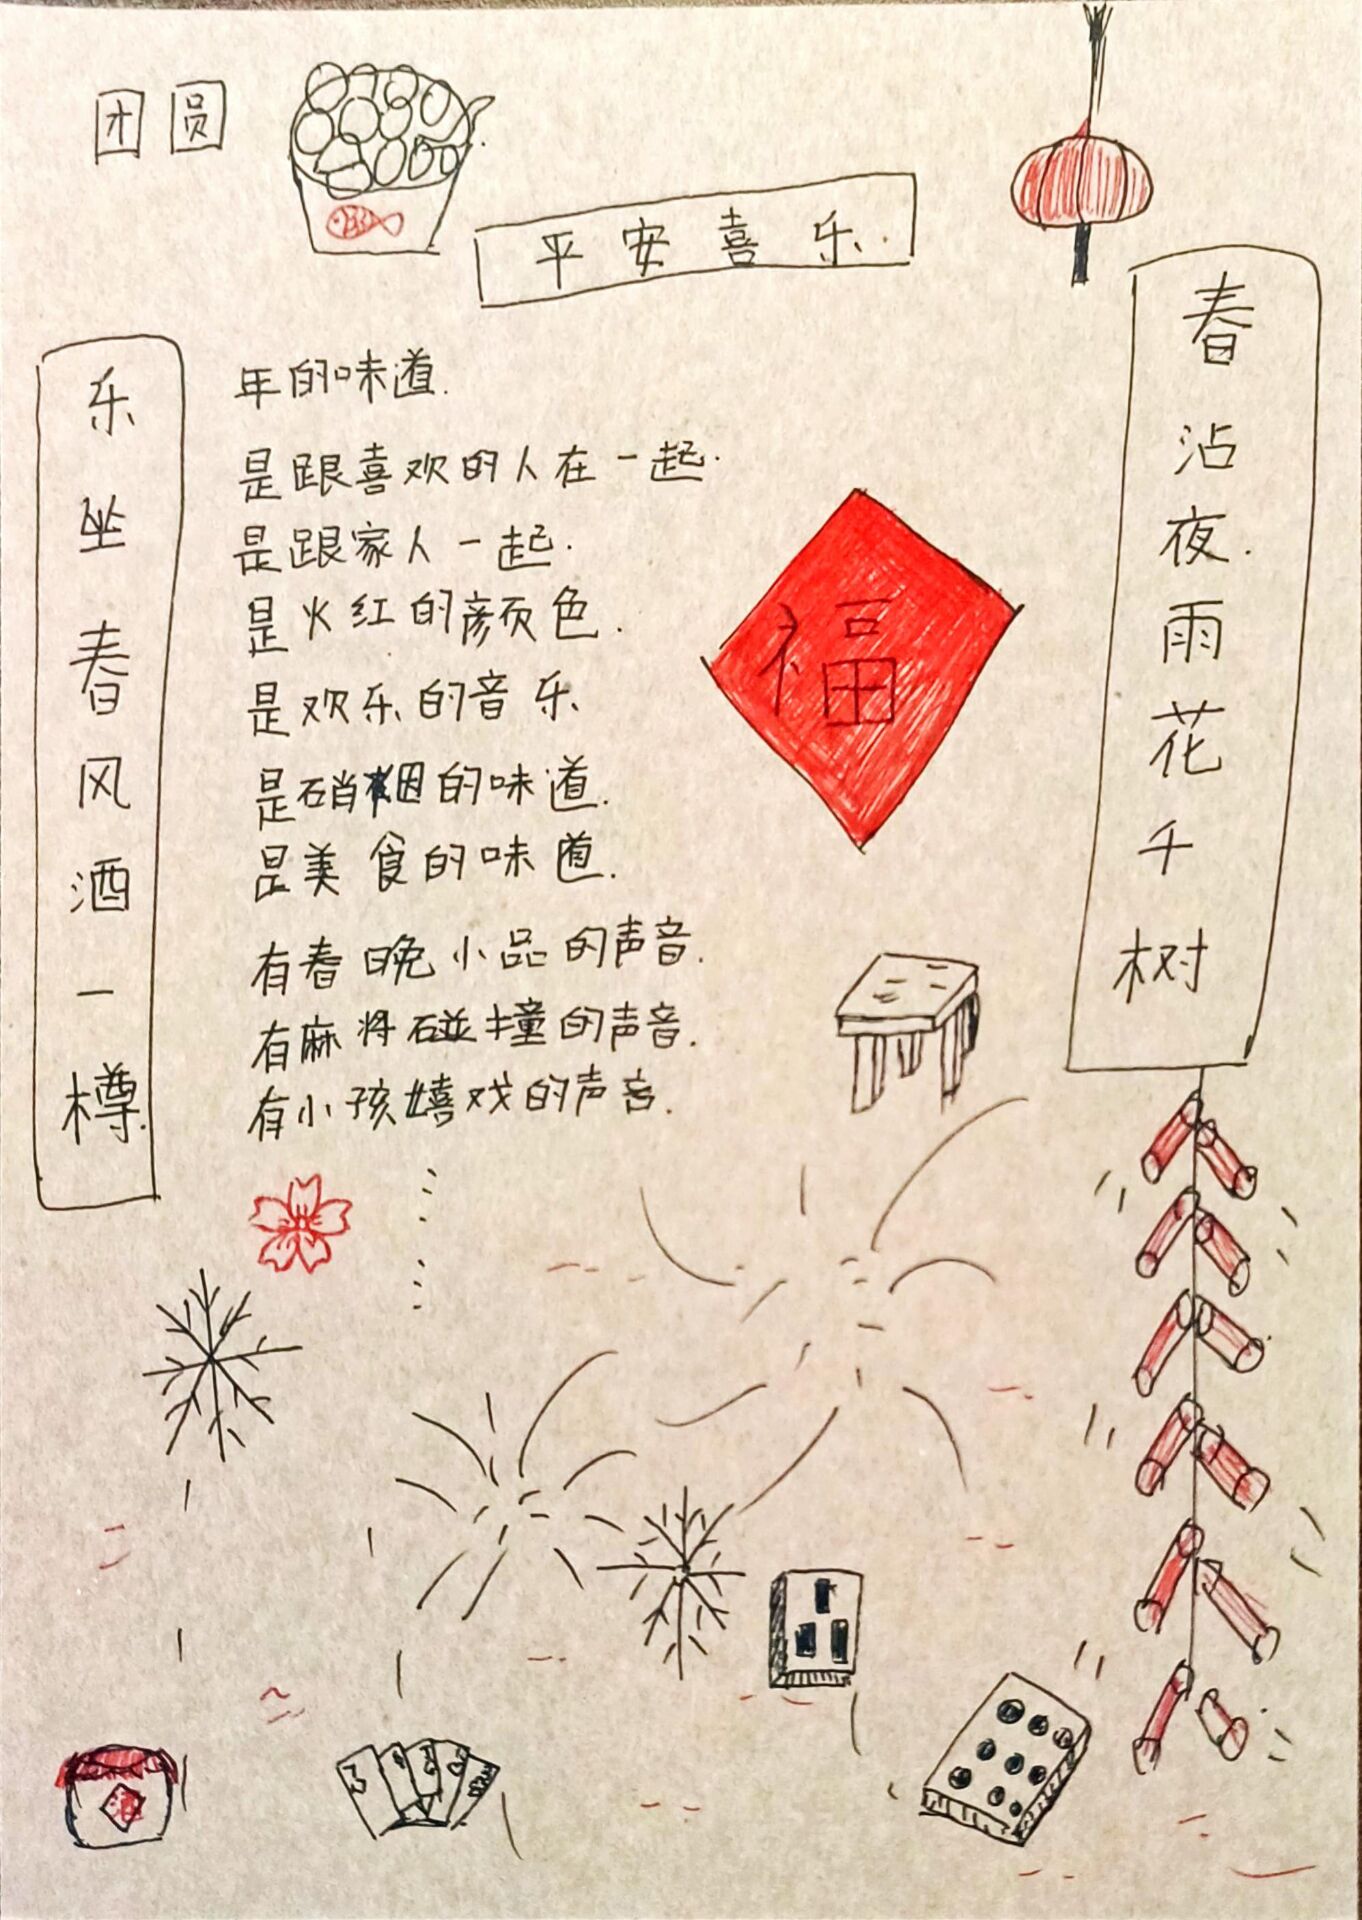 团圆
平安喜乐
春沾夜雨花千树
乐坐春风酒一樽
年的味道.
是跟喜欢的人在一起.
是跟家人一起.
是火红的颜色.
是欢乐的音乐
是硝烟的味道.
是美食的味道.
有春晚小品的声音.
有麻将碰撞的声音.
有小孩嬉戏的声音.
……
福